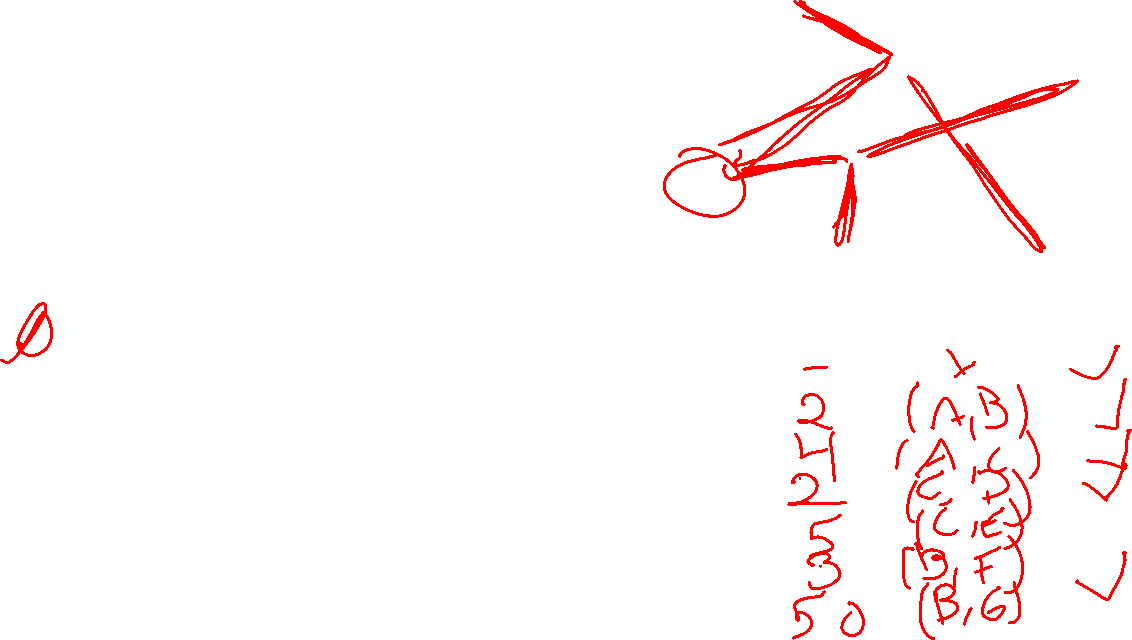 2 (A,B)
4 (A C)
2 (C D)
5 (C,E)
3 (B,F)
50 (B,G)